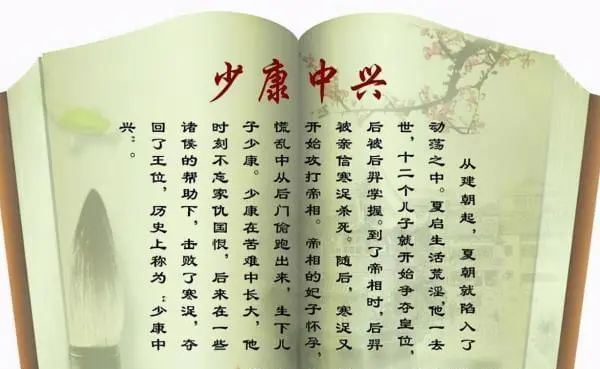 少康中兴
从建朝起，夏朝就陷入了
动荡之中。夏启生活荒淫，他一去
世，十二个儿子就开始争夺皇位，
后被后羿掌握。到了帝相时，后羿
被亲信寒浞杀死。随后，寒浞又
开始攻打帝相。帝相的妃子怀孕，
慌乱中从后门偷跑出来，生下儿
子少康。少康在苦难中长大，他
时刻不忘家仇国恨，后来在一些
诸侯的帮助下，击败了寒浞，夺
回了王位，历史上称为“少康中
兴”。